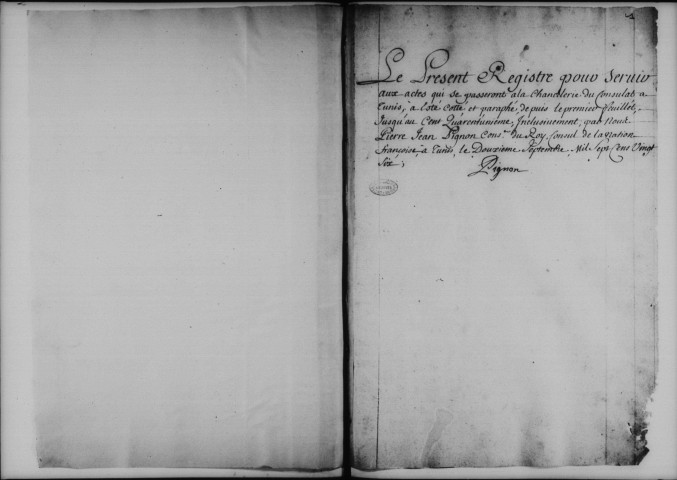 Le Present Registre pour servir
aux actes qui se passeront a la Chancelerie du Consulat a
Tunis, a eté cotté et paraphé, depuis le premier feuillet,
Jusqu'au Cent Quarentunieme, Inclusivement, par Nous
Pierre Jean Pignon Cons.r du Roy, Consul de la Nation
françoise, a Tunis, le Douxieme Septembre, Mil Sept Cens Vingt
Six;
Pignon